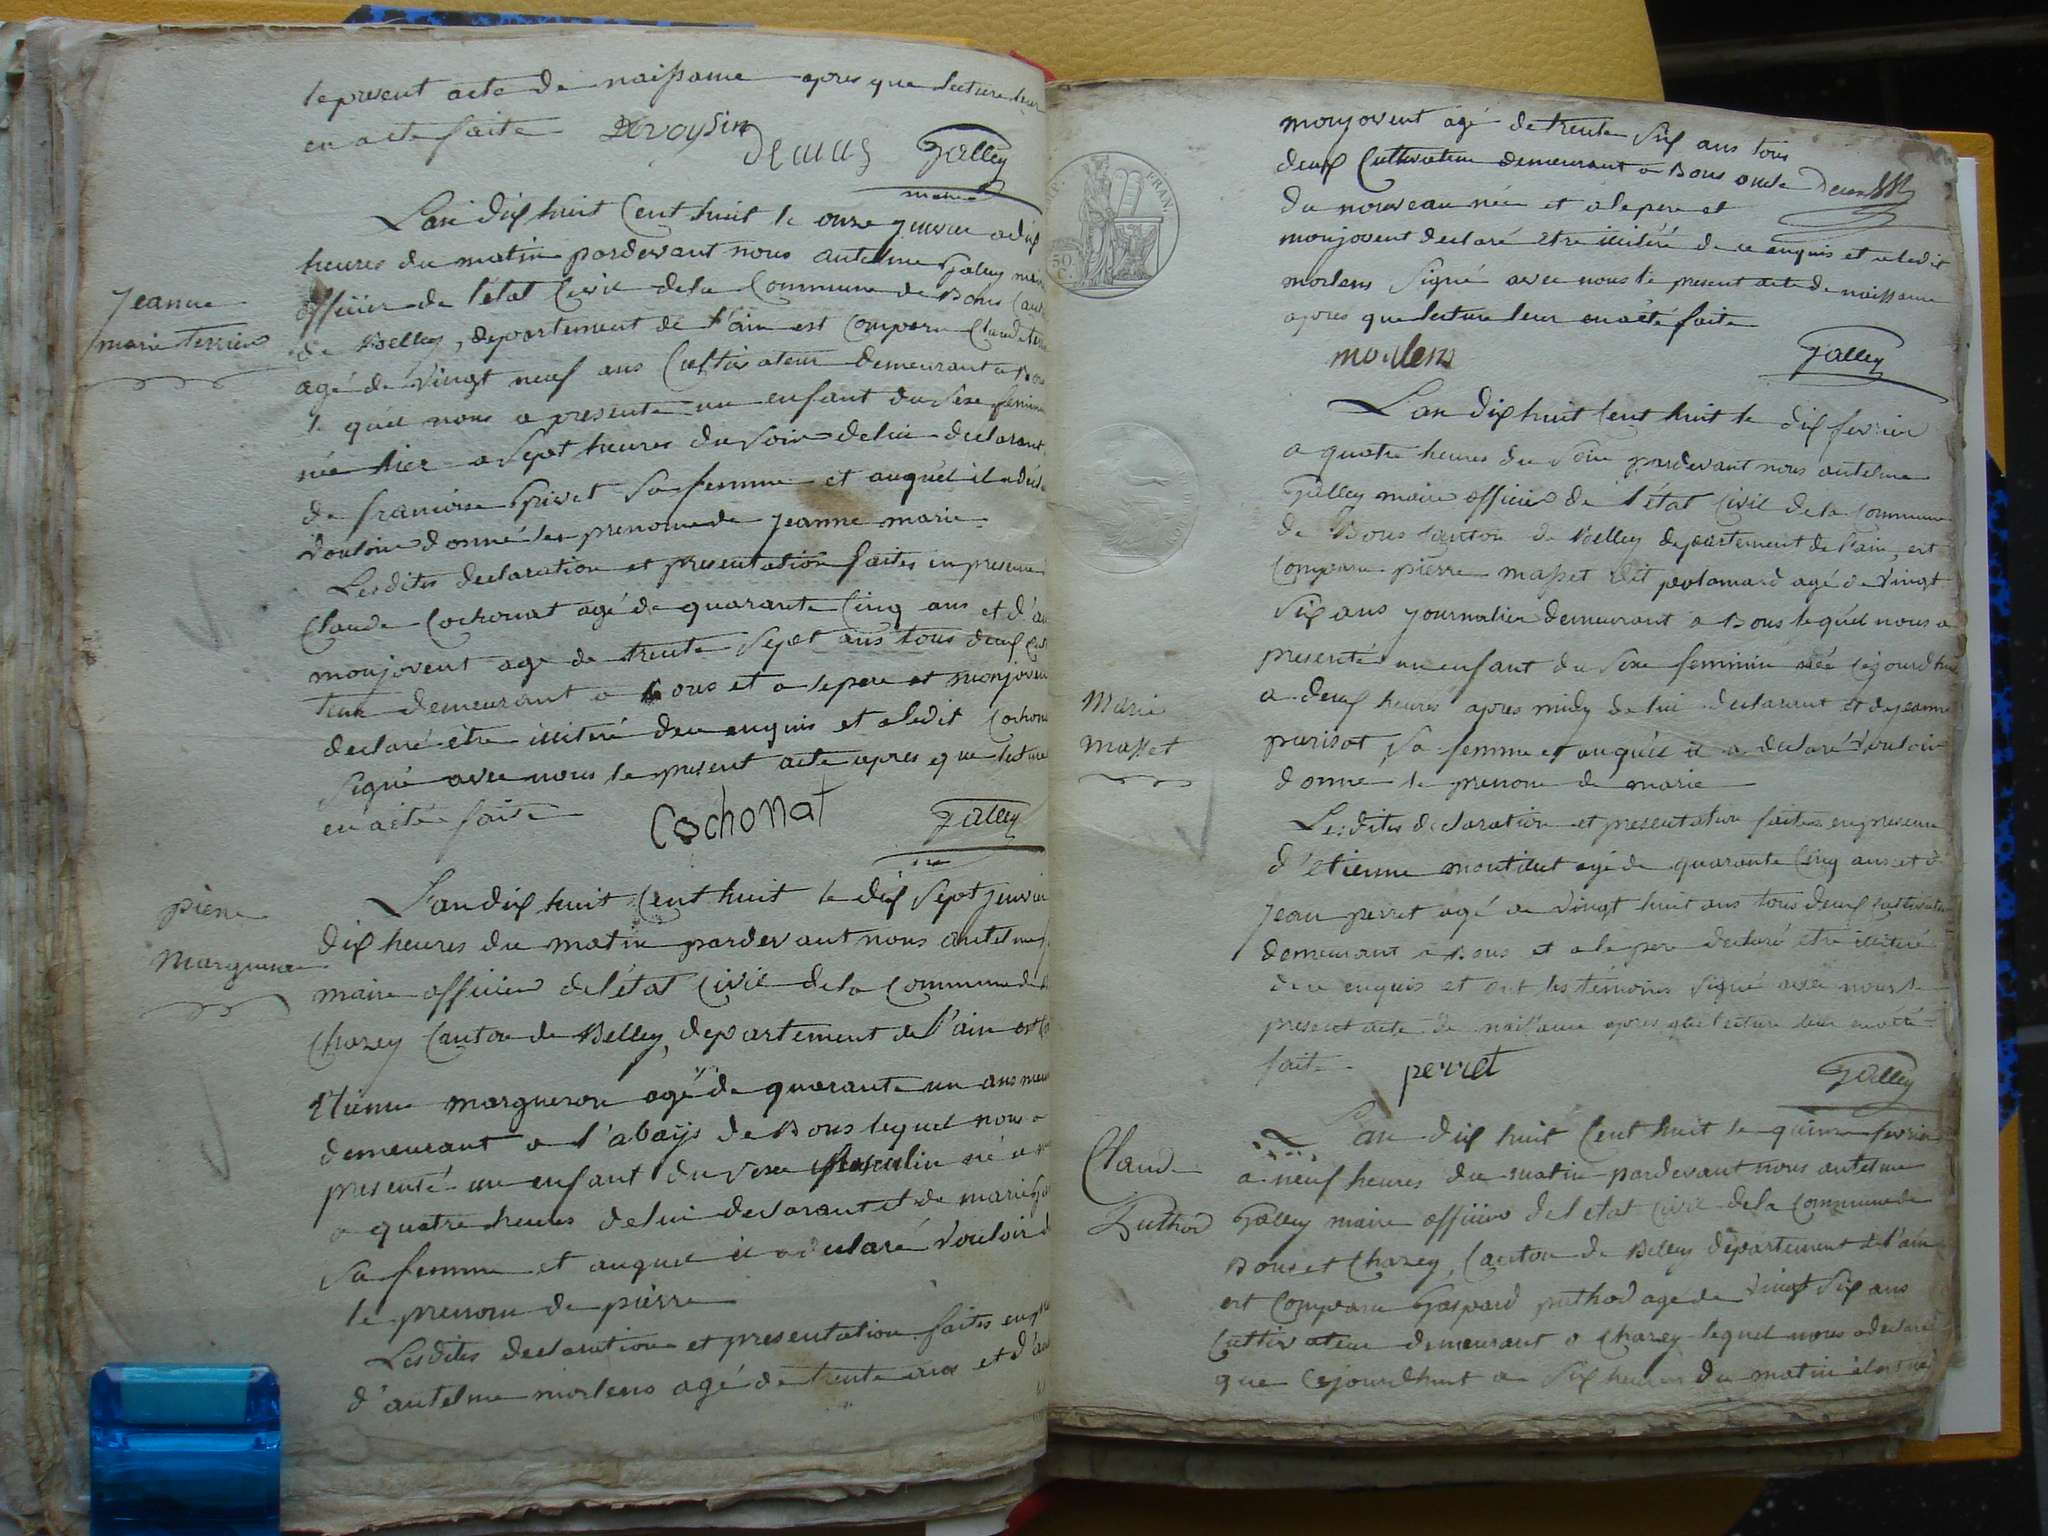 le present acte de naissance apres que lecture leur
en acte faite Dvoysin
Demas Galley
maire
Jeanne
marie terrier
L'an dix huit Cent huit le onze janvier a dix
heures du matin pardevant nous antelme Galley maire
officier de l'état Civil de la Commune de Bons Cant
de Belley, departement de l'ain est Comparu Claude
agé de vingt neuf ans Cultivateur demeurant a Bons
le quel nous a presenté un enfant du sexe feminin
née hier a sept heures du soir de lui declarant
de francoise Privet sa femme et auquel il a
vouloir donné les prenoms de jeanne marie
Lesdites declaration et presentation faites en presence
Claude Cochonat agé de quarante Cinq ans et d'an
monjovent age de trente sept ans tous deux
demeurant a Bons et a le pere et monjovent
declaré être illiteré de ce enquis et a ledit Cochonat
signé avec nous le present acte apres que lecture
en a été faite Cochonat Galley
pierre
Margueron
L'an dix huit Cent huit le dix sept janvier
dix heures du matin pardevant nous antelme
maire officier de l'état Civil de la Commune de
Chazey Canton de Belley, departement de l'ain est
Etienne margueron agé de quarante un ans
demeurant a l'abaÿs de Bons lequel nous a
presenté un enfant du sexe Masculin né
a quatre heures de lui declarant et de marie
sa femme et auquel il a declaré vouloir
le prenom de pierre
Lesdites declaration et presentation faites en
d'antelme morlens agé de trente ans et d'an
REP. FRAN.
50 C.
monjovent agé de trente six ans tous
deux Cultivateur demeurant a Bons oncle
du nouveau née et a le pere et
monjovent declaré être illiteré de ce enquis et a ledit
morlens signé avec nous le present acte de naissance
apres que lecture leur en a été faite
morlens Galley
L'an dix huit Cent huit le dix fevrier
a quatre heures du soir pardevant nous antelme
Galley maire officier de l'état Civil de la Commune
de Bons Canton de Belley departement de l'ain, est
Comparu pierre masset dit agé de vingt
six ans journalier demeurant a Bons lequel nous a
presenté un enfant du sexe feminin née cejourdhui
a deux heures apres midy de lui declarant et de jeanne
parisot sa femme et auquel il a declaré vouloir
donne le prenom de marie
Marie
Masset
Lesdites declaration et presentation faites en presence
d'etienne montillet agé de quarante Cinq ans et de
jean perret agé de vingt huit ans tous deux Cultivateur
demeurant a Bons et a le pere declaré etre illiteré
de ce enquis et ont les témoins signé avec nous le
present acte de naissance apres que lecture leur en a été
faite perret Galley
Claude
Puthod
L'an dix huit Cent huit le quinze fevrier
a neuf heures du matin pardevant nous antelme
Galley maire officier de l'etat Civil de la Commune de
Bons et Chazey, Canton de Belley departement de l'ain
est Comparu Gaspard puthod age de vingt six ans
Cultivateur demeurant a Chazey lequel nous a declaré
que cejourdhuit a six heures du matin il est né